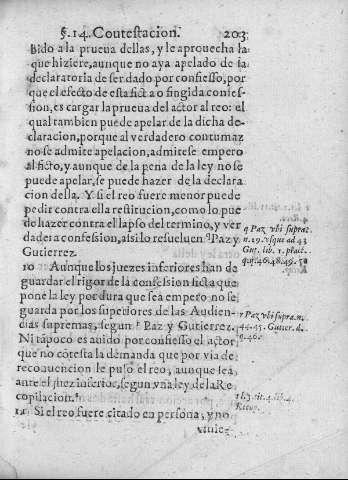 §. 14. Contestacion. 203
bido a la prueua dellas, y le aprouecha la
que hiziere, aunque no aya apelado de la
declaratoria de ser dado por confiesso, por
que el efecto de esta ficta o fingida confes-
sion, es cargar la prueua del actor al reo: el
qual tambien puede apelar de la dicha de-
claracion, porque al verdadero contumaz
no se admite apelacion, admitese empero
al ficto, y aunque de la pena de la ley no se
puede apelar, se puede hazer de la declara
cion della. Y si el reo fuere menor puede
pedir contra ella restitucion, como lo pue
de hazer contra el lapso del termino, y ver
dadera confession, assi lo resueluen q Paz y
Gutierrez.
q Paz vbi suprà
n. 29. vsque ad 43
Gut. lib. 1. pract.
q. 46. 48. 49. 50
10 Aunque los juezes inferiores han de
guardar el rigor de la confession ficta que
pone la ley por dura que sea empero no se
guarda por los superiores de las Audien-
dias supremas, segun r Paz y Gutierrez.
Ni tãpoco es auido por confiesso el actor,
que no cõtesta la demanda que por via de
reconuencion le puso el reo, aunque sea
ante el juez inferior, segun vna ley de la Re
copilacion.
r Paz vbi supra n.
44. 45. Gutier. d.
q. 46.
s l. 3. tit. 4. lib. 4.
Recop.
11 Si el reo fuere citado en persona, y no